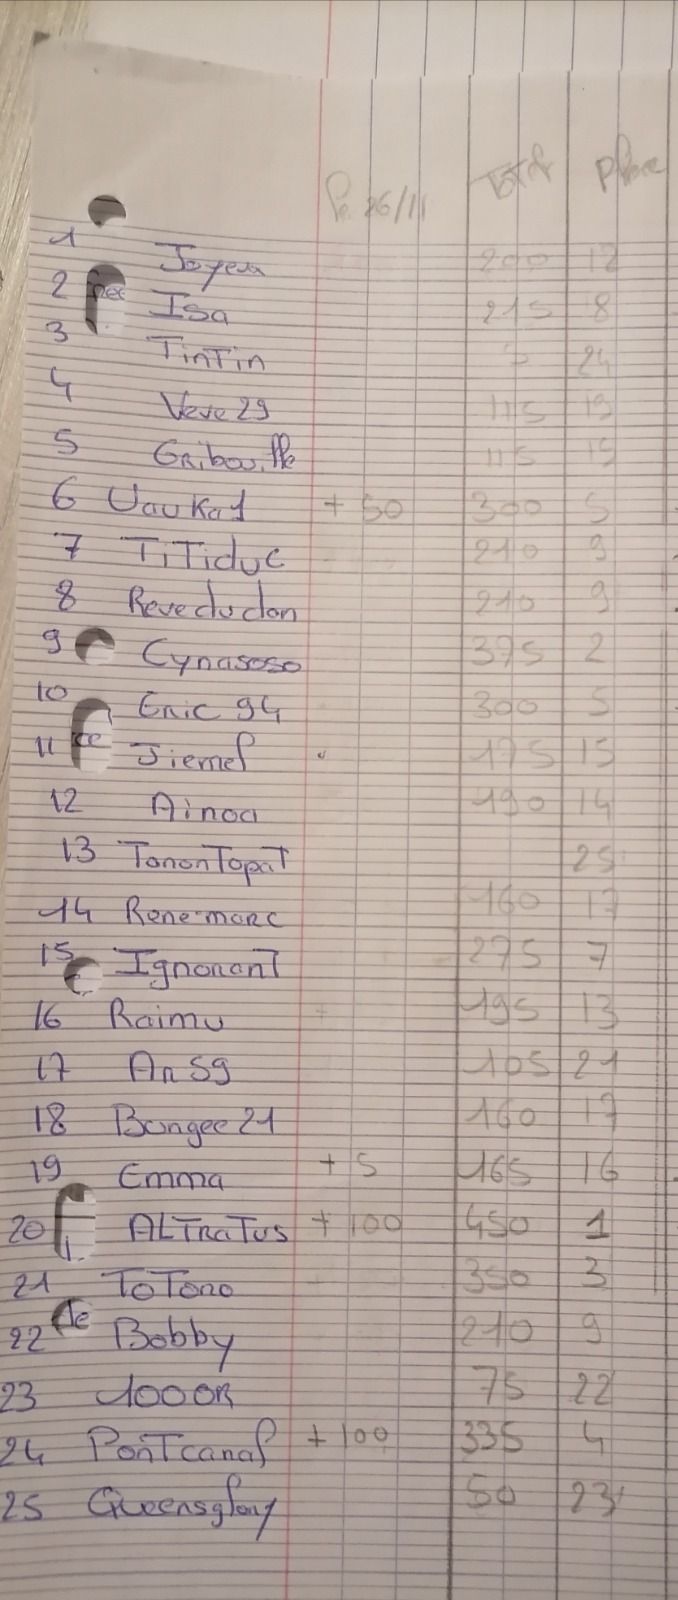 Le 26/11 Total Place
1 Joyeux 200 12
2 Isa 215 8
3 TinTin 24
4 Veve29 115 19
5 Gribouille 115 19
6 Uauka1 +50 300 5
7 TiTiduc 210 9
8 Reveduclan 210 9
9 Cynasoso 375 2
10 Eric 94 300 5
11 Jiemel 175 15
12 Ainoa 190 14
13 TononTopaT 25
14 Renemarc 160 17
15 IgnoranT 275 7
16 Raimu 195 13
17 An59 105 21
18 Bongee21 160 17
19 Emma +5 165 16
20 ALTRaTus +100 450 1
21 ToTono 350 3
22 Bobby 210 9
23 1000R 75 22
24 PonTcanal +100 335 4
25 Queensglory 50 23